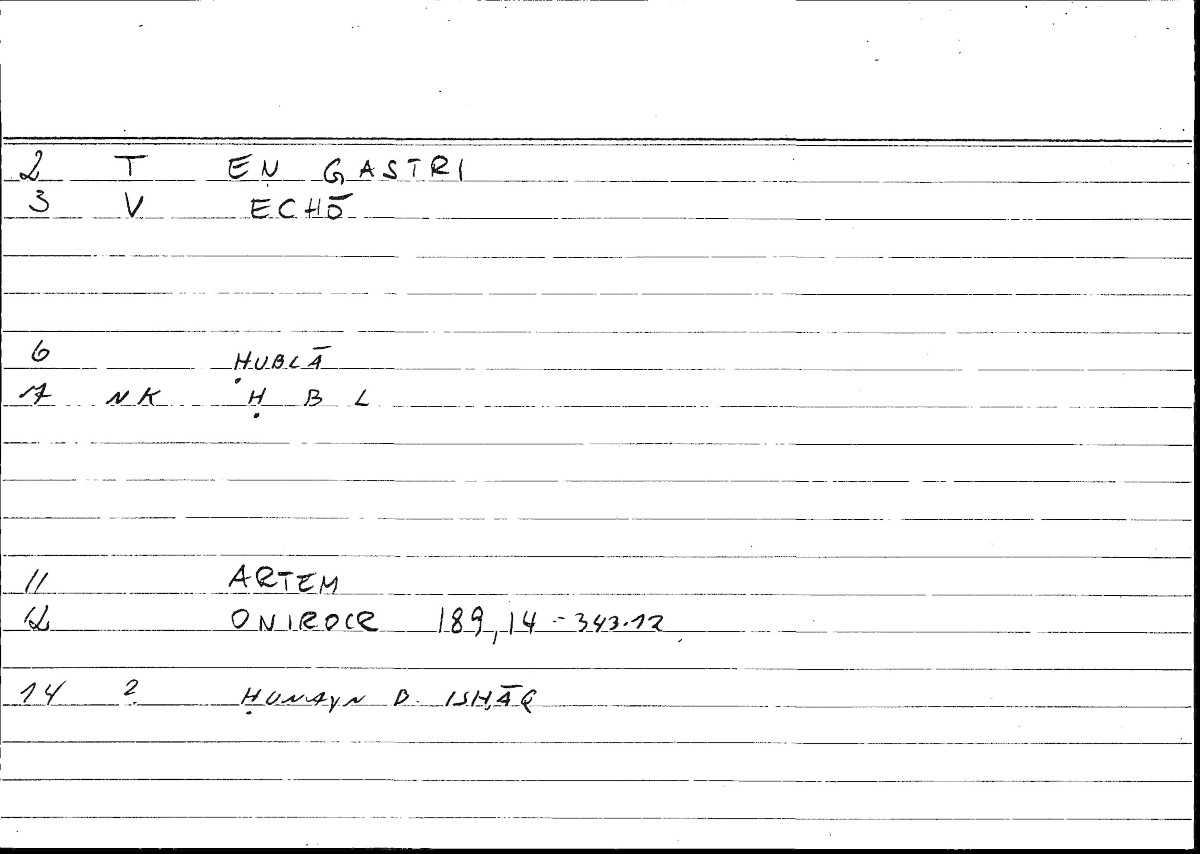 2 T EN GASTRI
3 V ECHŌ
6 ḤUBLĀ
7 NK Ḥ B L
11 ARTEM
12 ONIROCR 189,14 - 343.12
14 2 ḤUNAYN B. ISḤĀQ